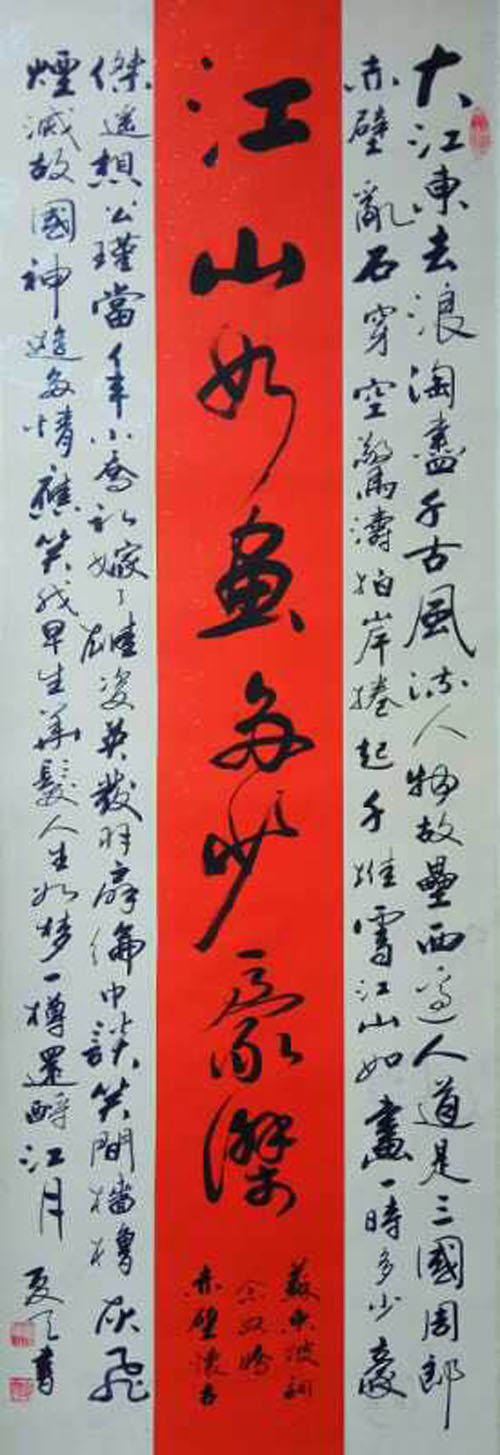 大江東去浪淘盡千古風流人物故壘西邊人道是三國周郎
赤壁亂石穿空驚濤拍岸捲起千堆雪江山如畫一時多少豪
江山如畫多少豪傑
蘇東坡詞
念奴嬌
赤壁懷古
傑遙想公瑾當年小喬初嫁了雄姿英發羽扇綸巾談笑間檣櫓灰飛
煙滅故國神遊多情應笑我早生華髮人生如梦一樽還酹江月
夏天書